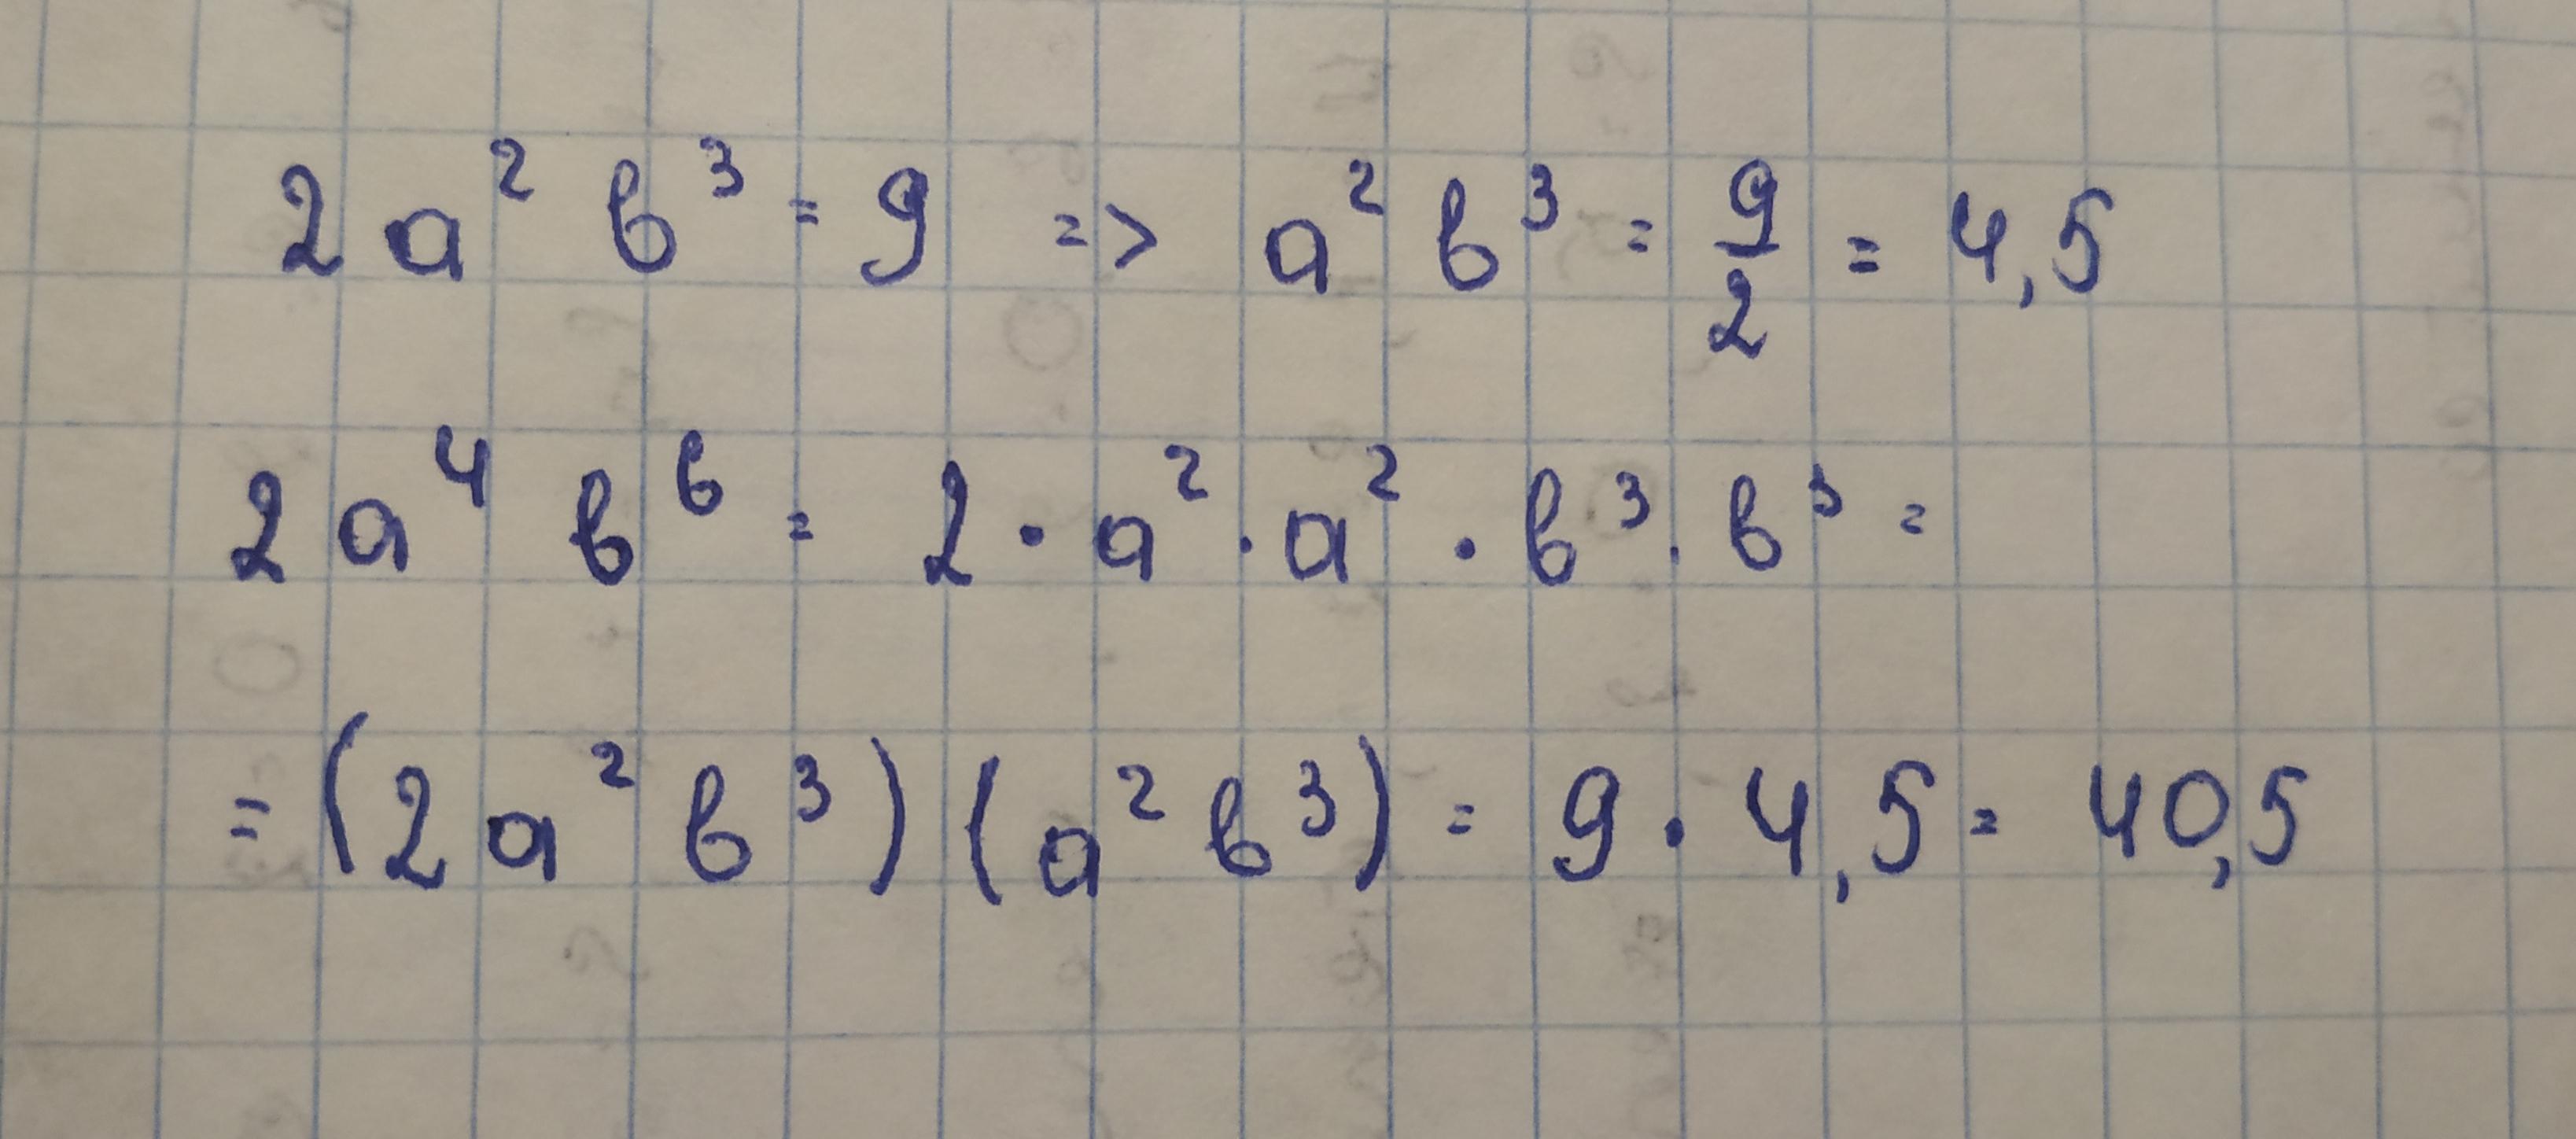 2a²b³ = 9 => a²b³ = 9/2 = 4,5
2a⁴b⁶ = 2 · a² · a² · b³ · b³ =
= (2a²b³)(a²b³) = 9 · 4,5 = 40,5